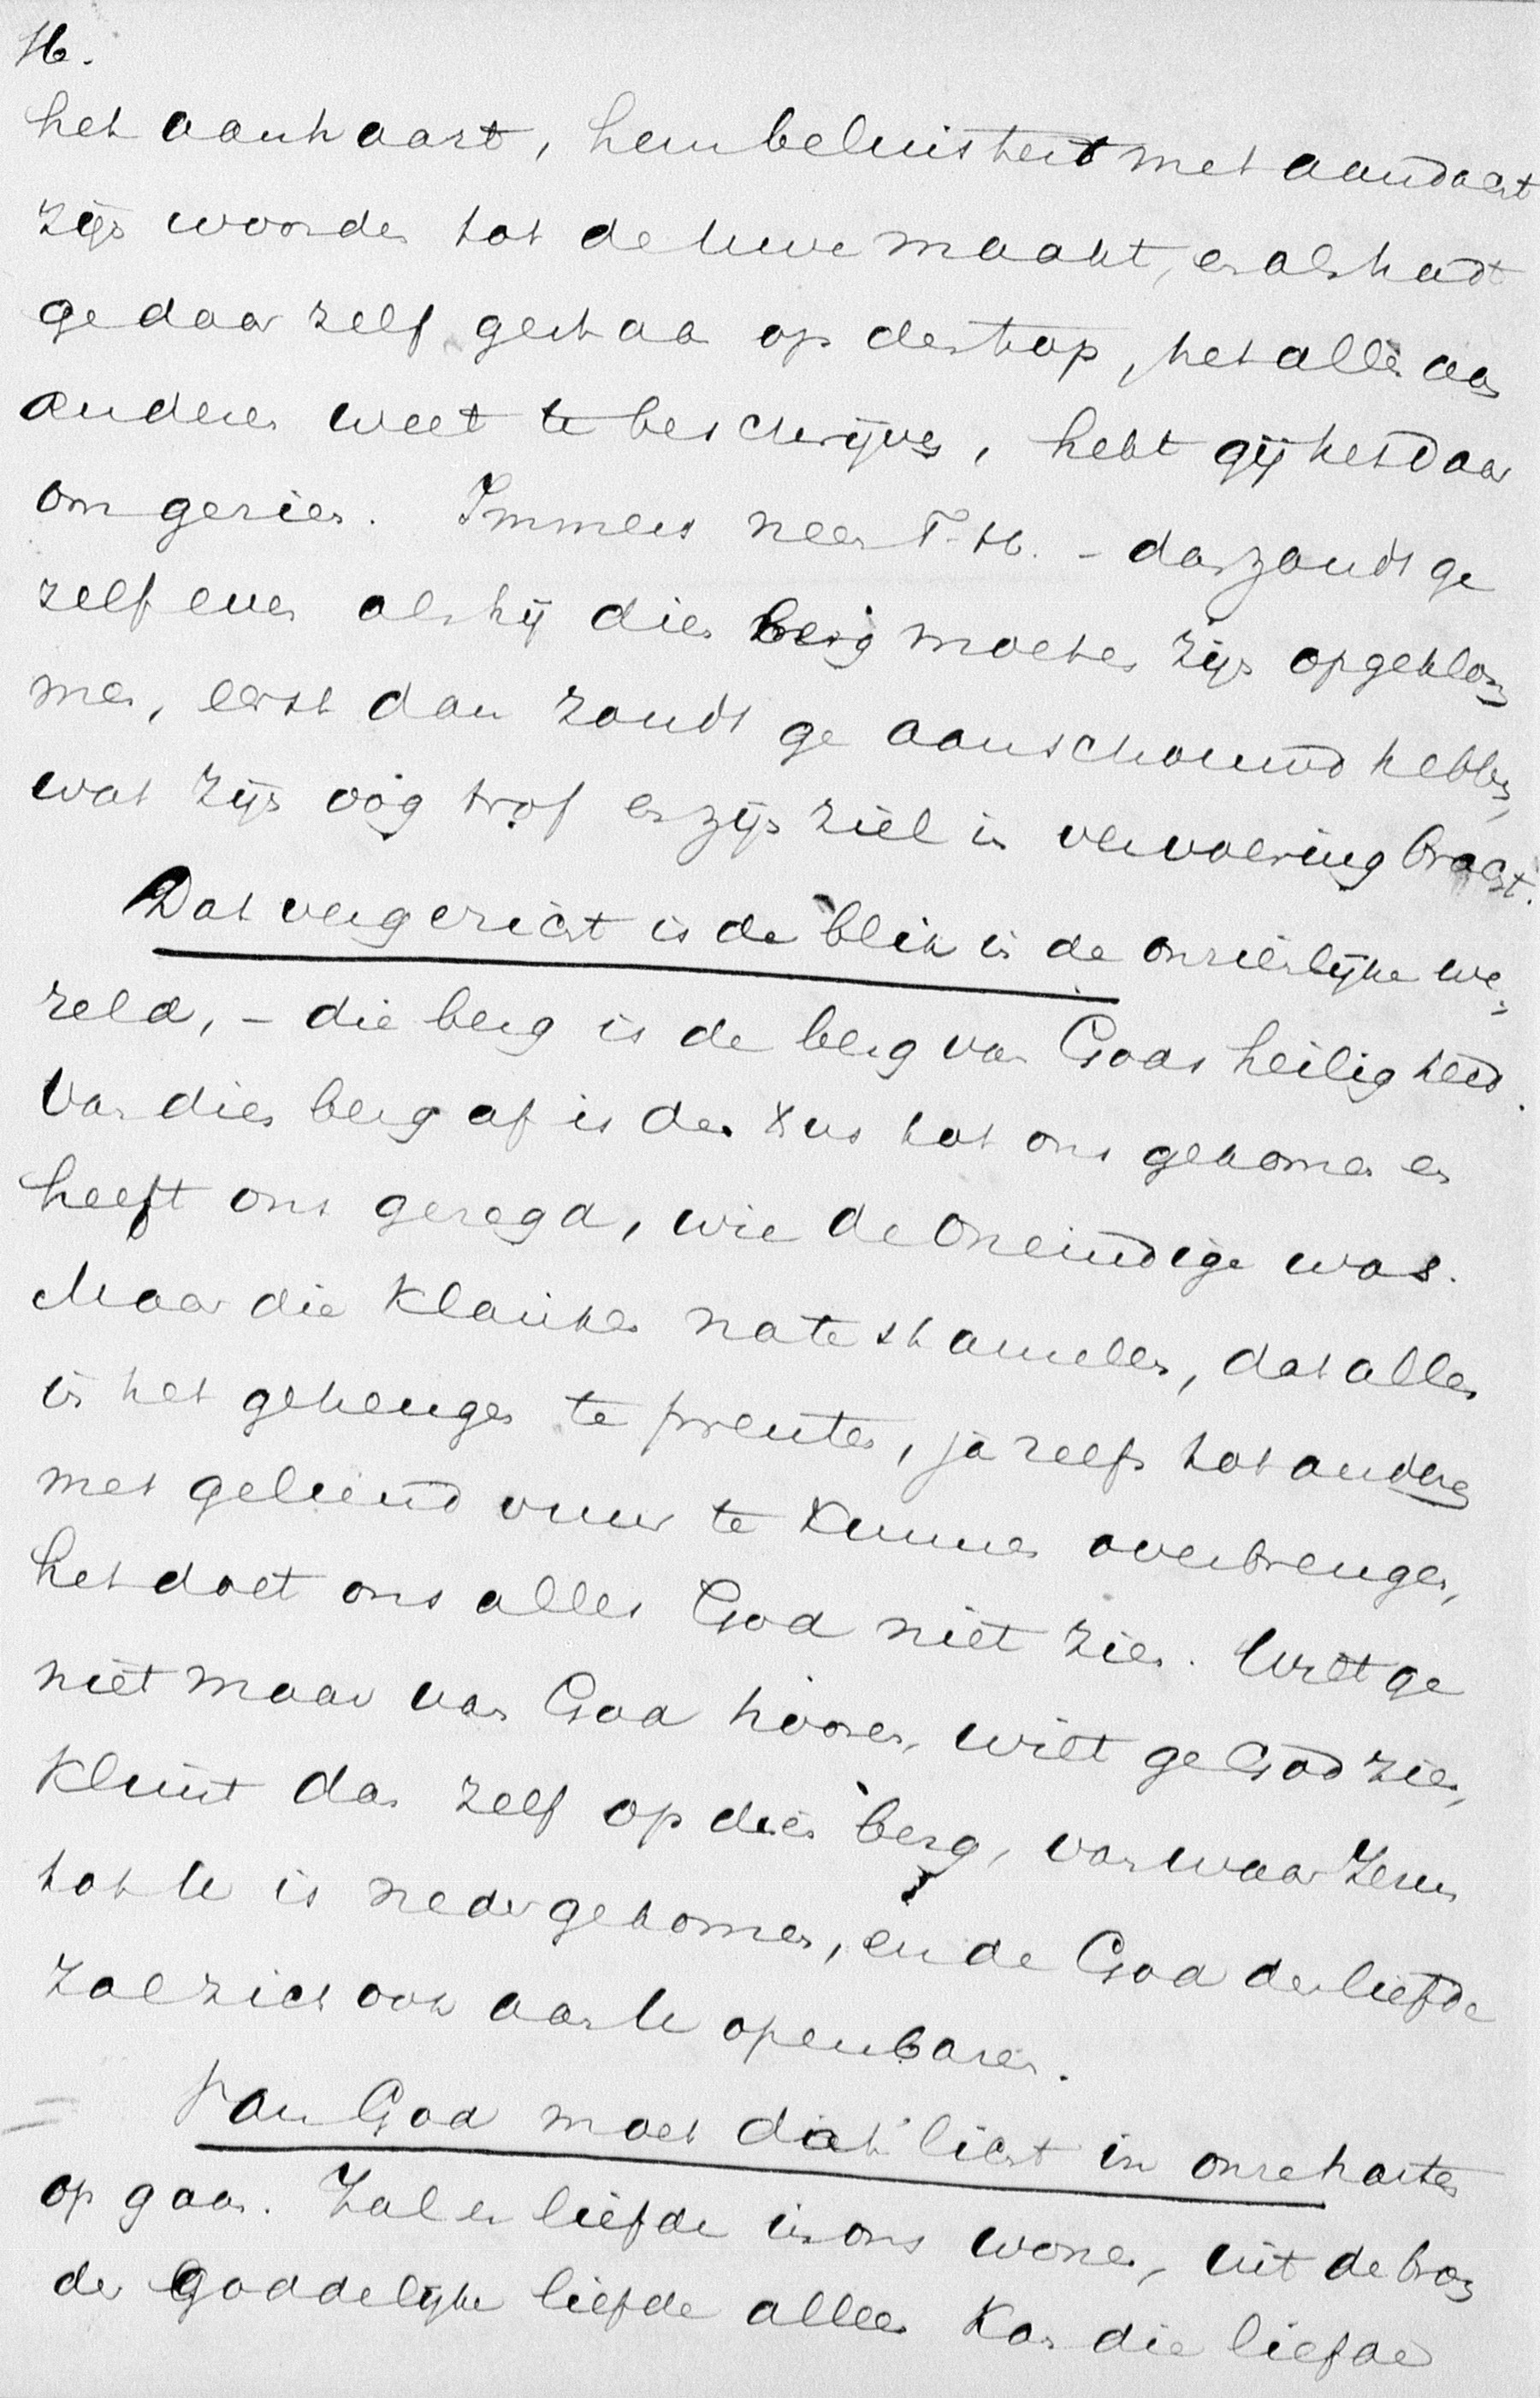 16.
het aanhoort, hem beluistert met aandacht
zijn woorden tot de Uwe maakt, en als hadt
ge daar zelf gestaan op den top, het alles aan
anderen weet te beschrijven, hebt gij het daar
om gezien. Immers neen T. H. – dan zoudt ge
zelf even als hij dien berg moeten zijn opgeklom
men, eerst dan zoudt ge aanschouwd hebben,
wat zijn oog trof en zijn ziel in vervoering bracht.
Dat vergezicht is de blik in de onzienlijke we-
reld, – die berg is de berg van Gods heiligheid.
Van dien berg af is de Xus tot ons gekomen en
heeft ons gezegd, wie de Oneindige was.
Maar die klanken na te stamelen, dat alles
in het geheugen te prenten, ja zelfs tot anderen
met geleend vuur te kunnen overbrengen,
het doet ons alles God niet zien. Wilt ge
niet maar van God hooren, wilt ge God zien,
klimt dan zelf op dien berg, van waar Jezus
tot U is nedergekomen, en de God der liefde
zal zich ook aan U openbaren.
Van God moet dat licht in onze harten
op gaan. Zal er liefde in ons wonen, uit de bron
der Goddelijke liefde alleen kan die liefde